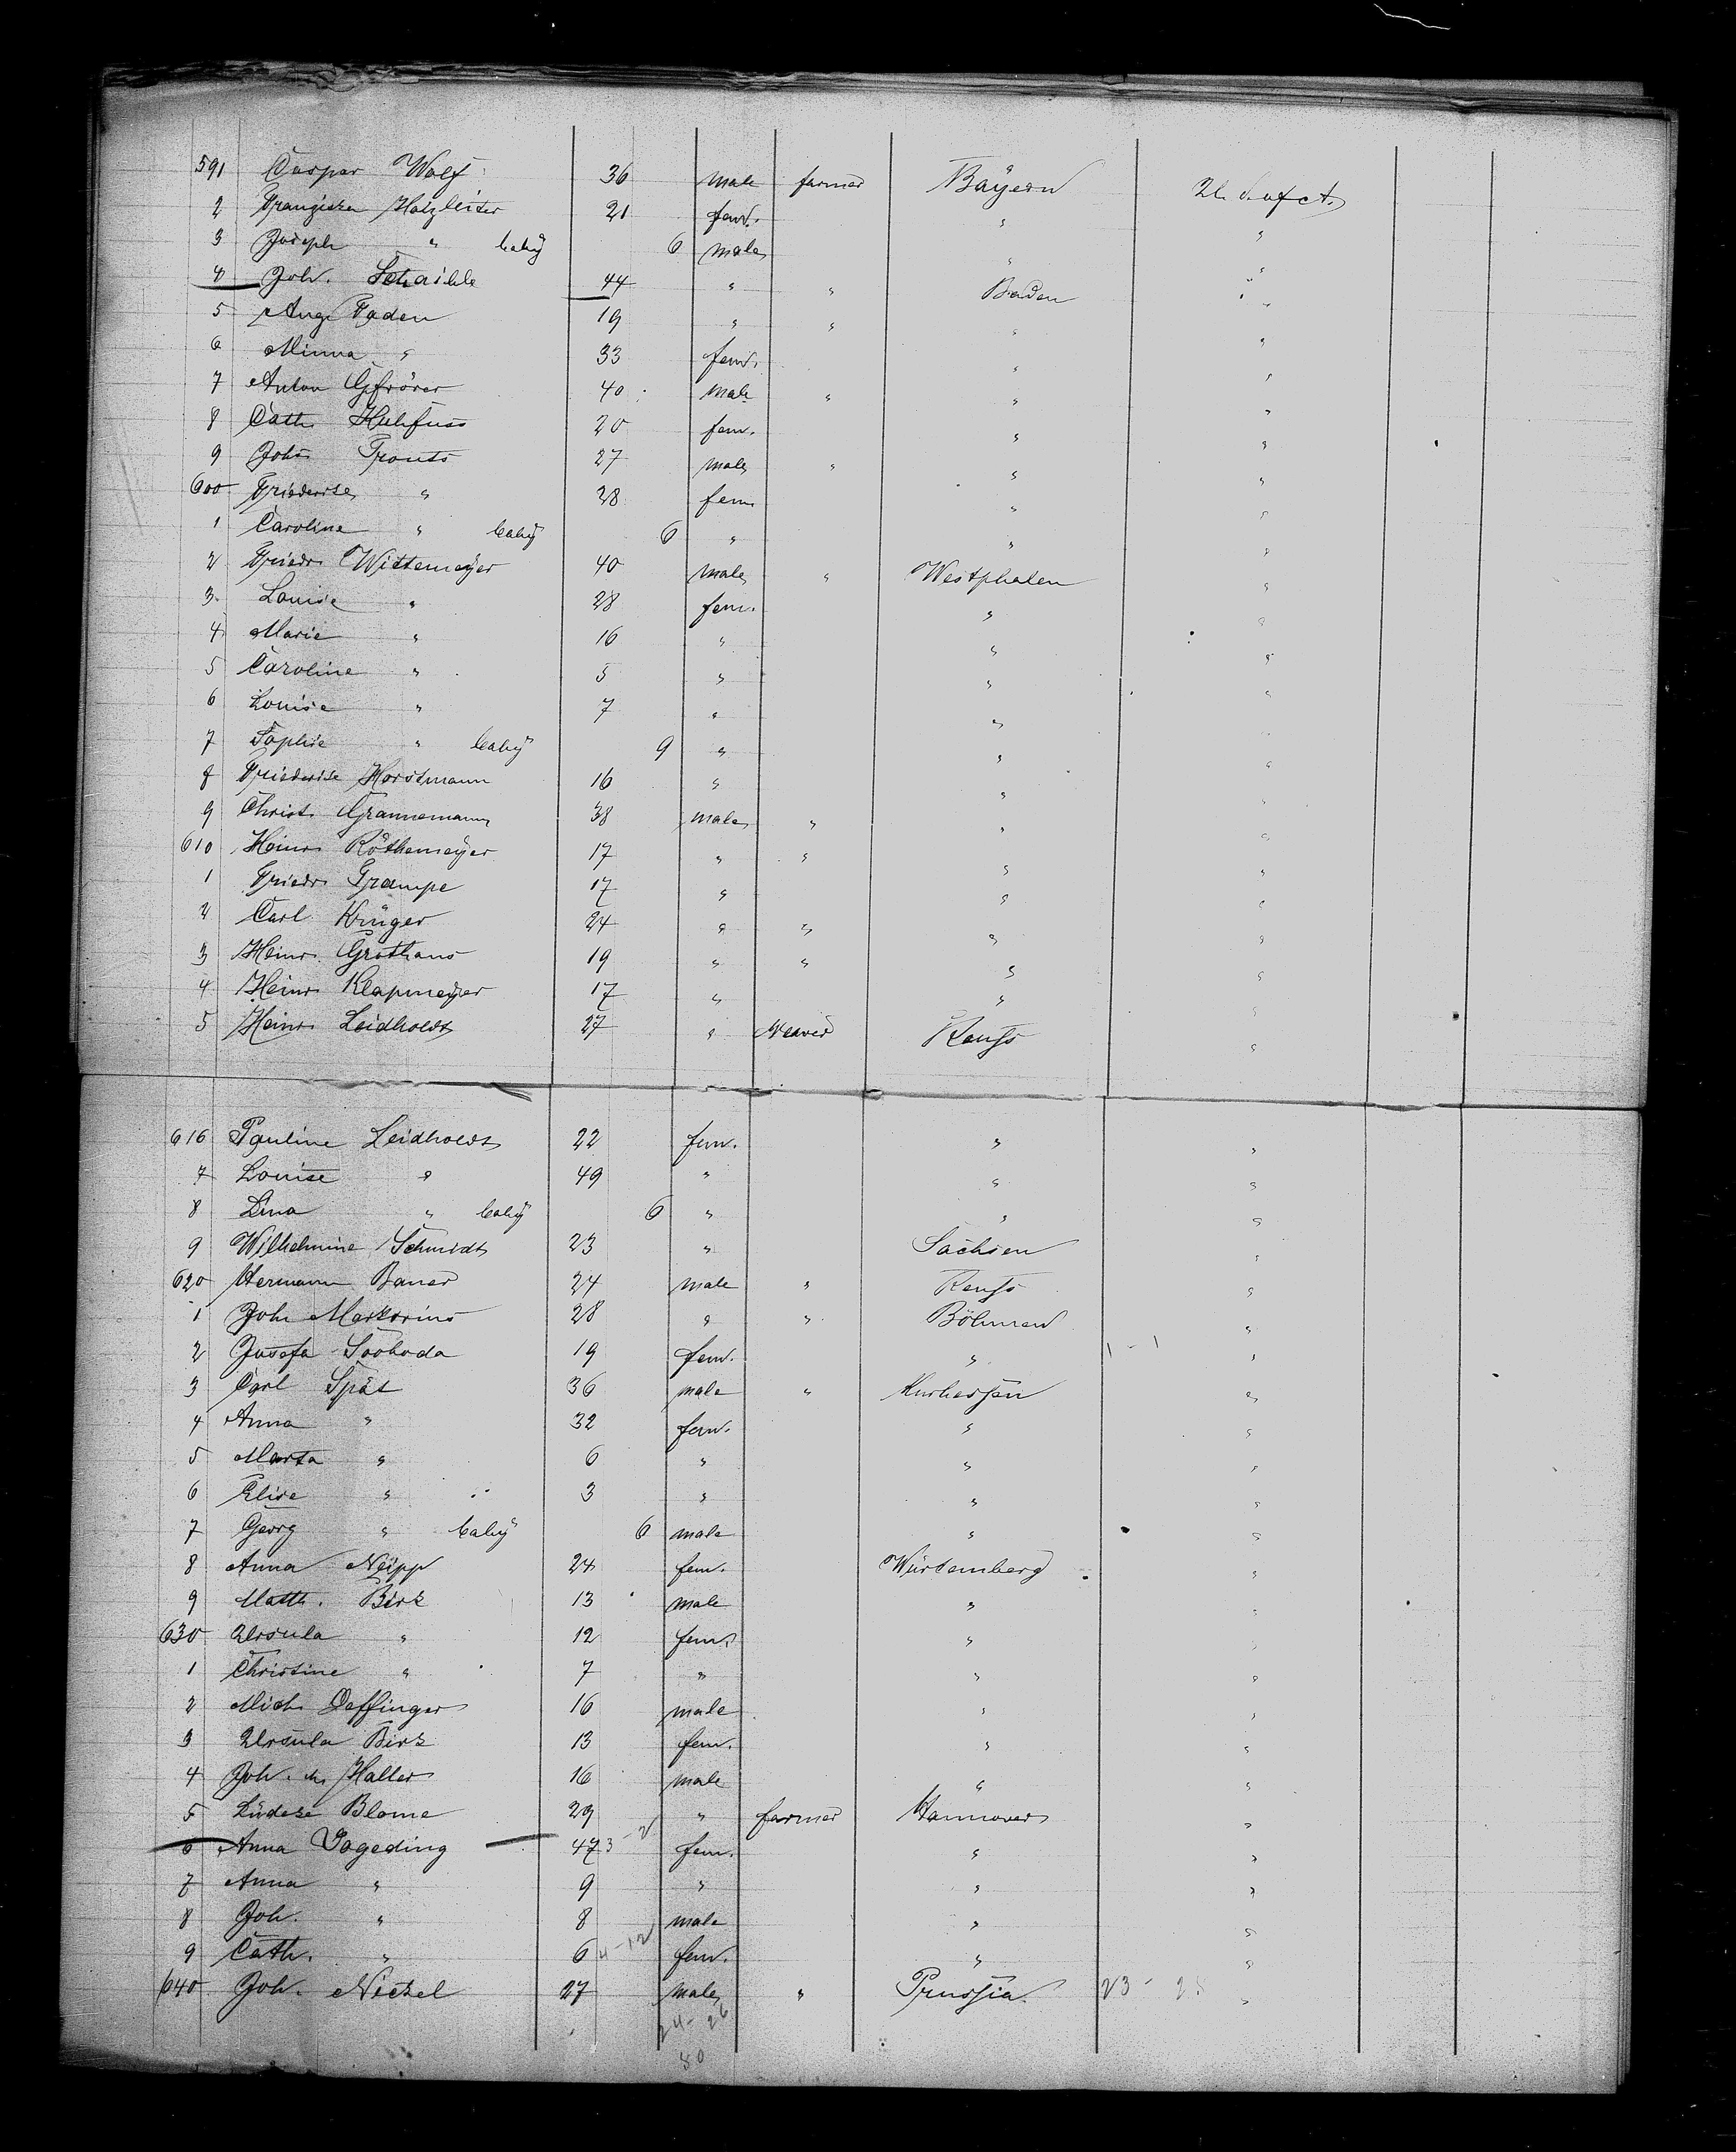 591 Caspar Wolf 36 male farmer Bayern U. S. of A.
2 Franziska Holzleiter 21 fem. " "
3 Joseph " baby 6 male " "
4 Joh. Schaible 44 " " Baden "
5 Aug. Faden 19 " " " "
6 Minna " 33 fem. " "
7 Anton Gfrörer 40 male " " "
8 Cath. Huhfuss 20 fem. " "
9 Johs. 27 male " " "
600 Friederike " 28 fem. " "
1 Caroline " baby 6 " " "
2 Friedr. Wittemeyer 40 male " Westphalen "
3 Louise " 28 fem. " "
4 Marie " 16 " " "
5 Caroline " 5 " " "
6 Louise " 7 " " "
7 Sophie " baby 9 " " "
8 Friederike Horstmann 16 " " "
9 Christ. Grannemann 38 male " " "
610 Heinr. Röthemeyer 17 " " " "
1 Friedr. Grampe 17 " " "
2 Carl Krüger 24 " " " "
3 Heinr. Grothaus 19 " " " "
4 Heinr. Klapmeyer 17 " " "
5 Heinr. Leidholdt 27 " Weaver Reuss "
616 Pauline Leidholdt 22 fem. " "
7 Louise " 49 " " "
8 Lina " baby 6 " " "
9 Wilhelmine Schmidt 23 " Sachsen "
620 Hermann Bauer 24 male " Reuss "
1 Joh. 28 " " Böhmen "
2 Josefa Svoboda 19 fem. " 1 - 1 "
3 Carl Spät 36 male " Kurhessen "
4 Anna " 32 fem. " "
5 Marta " 6 " " "
6 Elise " 3 " " "
7 Georg " baby 6 male " "
8 Anna Neipp 24 fem. Würtemberg "
9 Matth. Birk 13 male " "
630 Ursula " 12 fem. " "
1 Christine " 7 " " "
2 Mich. Deffinger 16 male " "
3 Ursula Birk 13 fem. " "
4 Joh. Haller 16 male " "
5 Lüdeke Blome 29 " farmer Hannover "
6 Anna Sageding 47 3-2 fem. " "
7 Anna " 9 " " "
8 Joh. " 8 male " "
9 Cath. " 6 4-12 fem. " "
640 Joh. Nickel 27 male " Prussia 23 - "
24 - 26
80